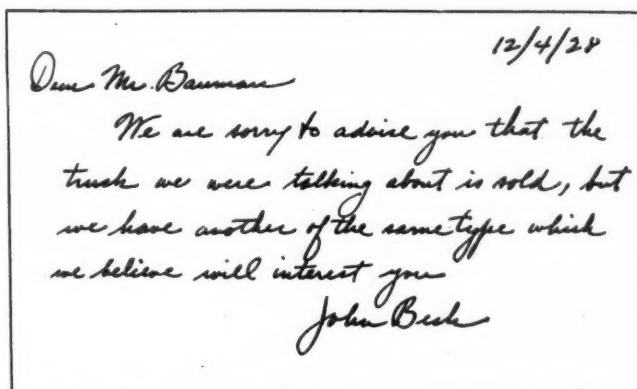 12/4/28
Dear Mr. Bauman
We are sorry to advise you that the
truck we were talking about is sold, but
we have another of the same type which
we believe will interest you
John Besk